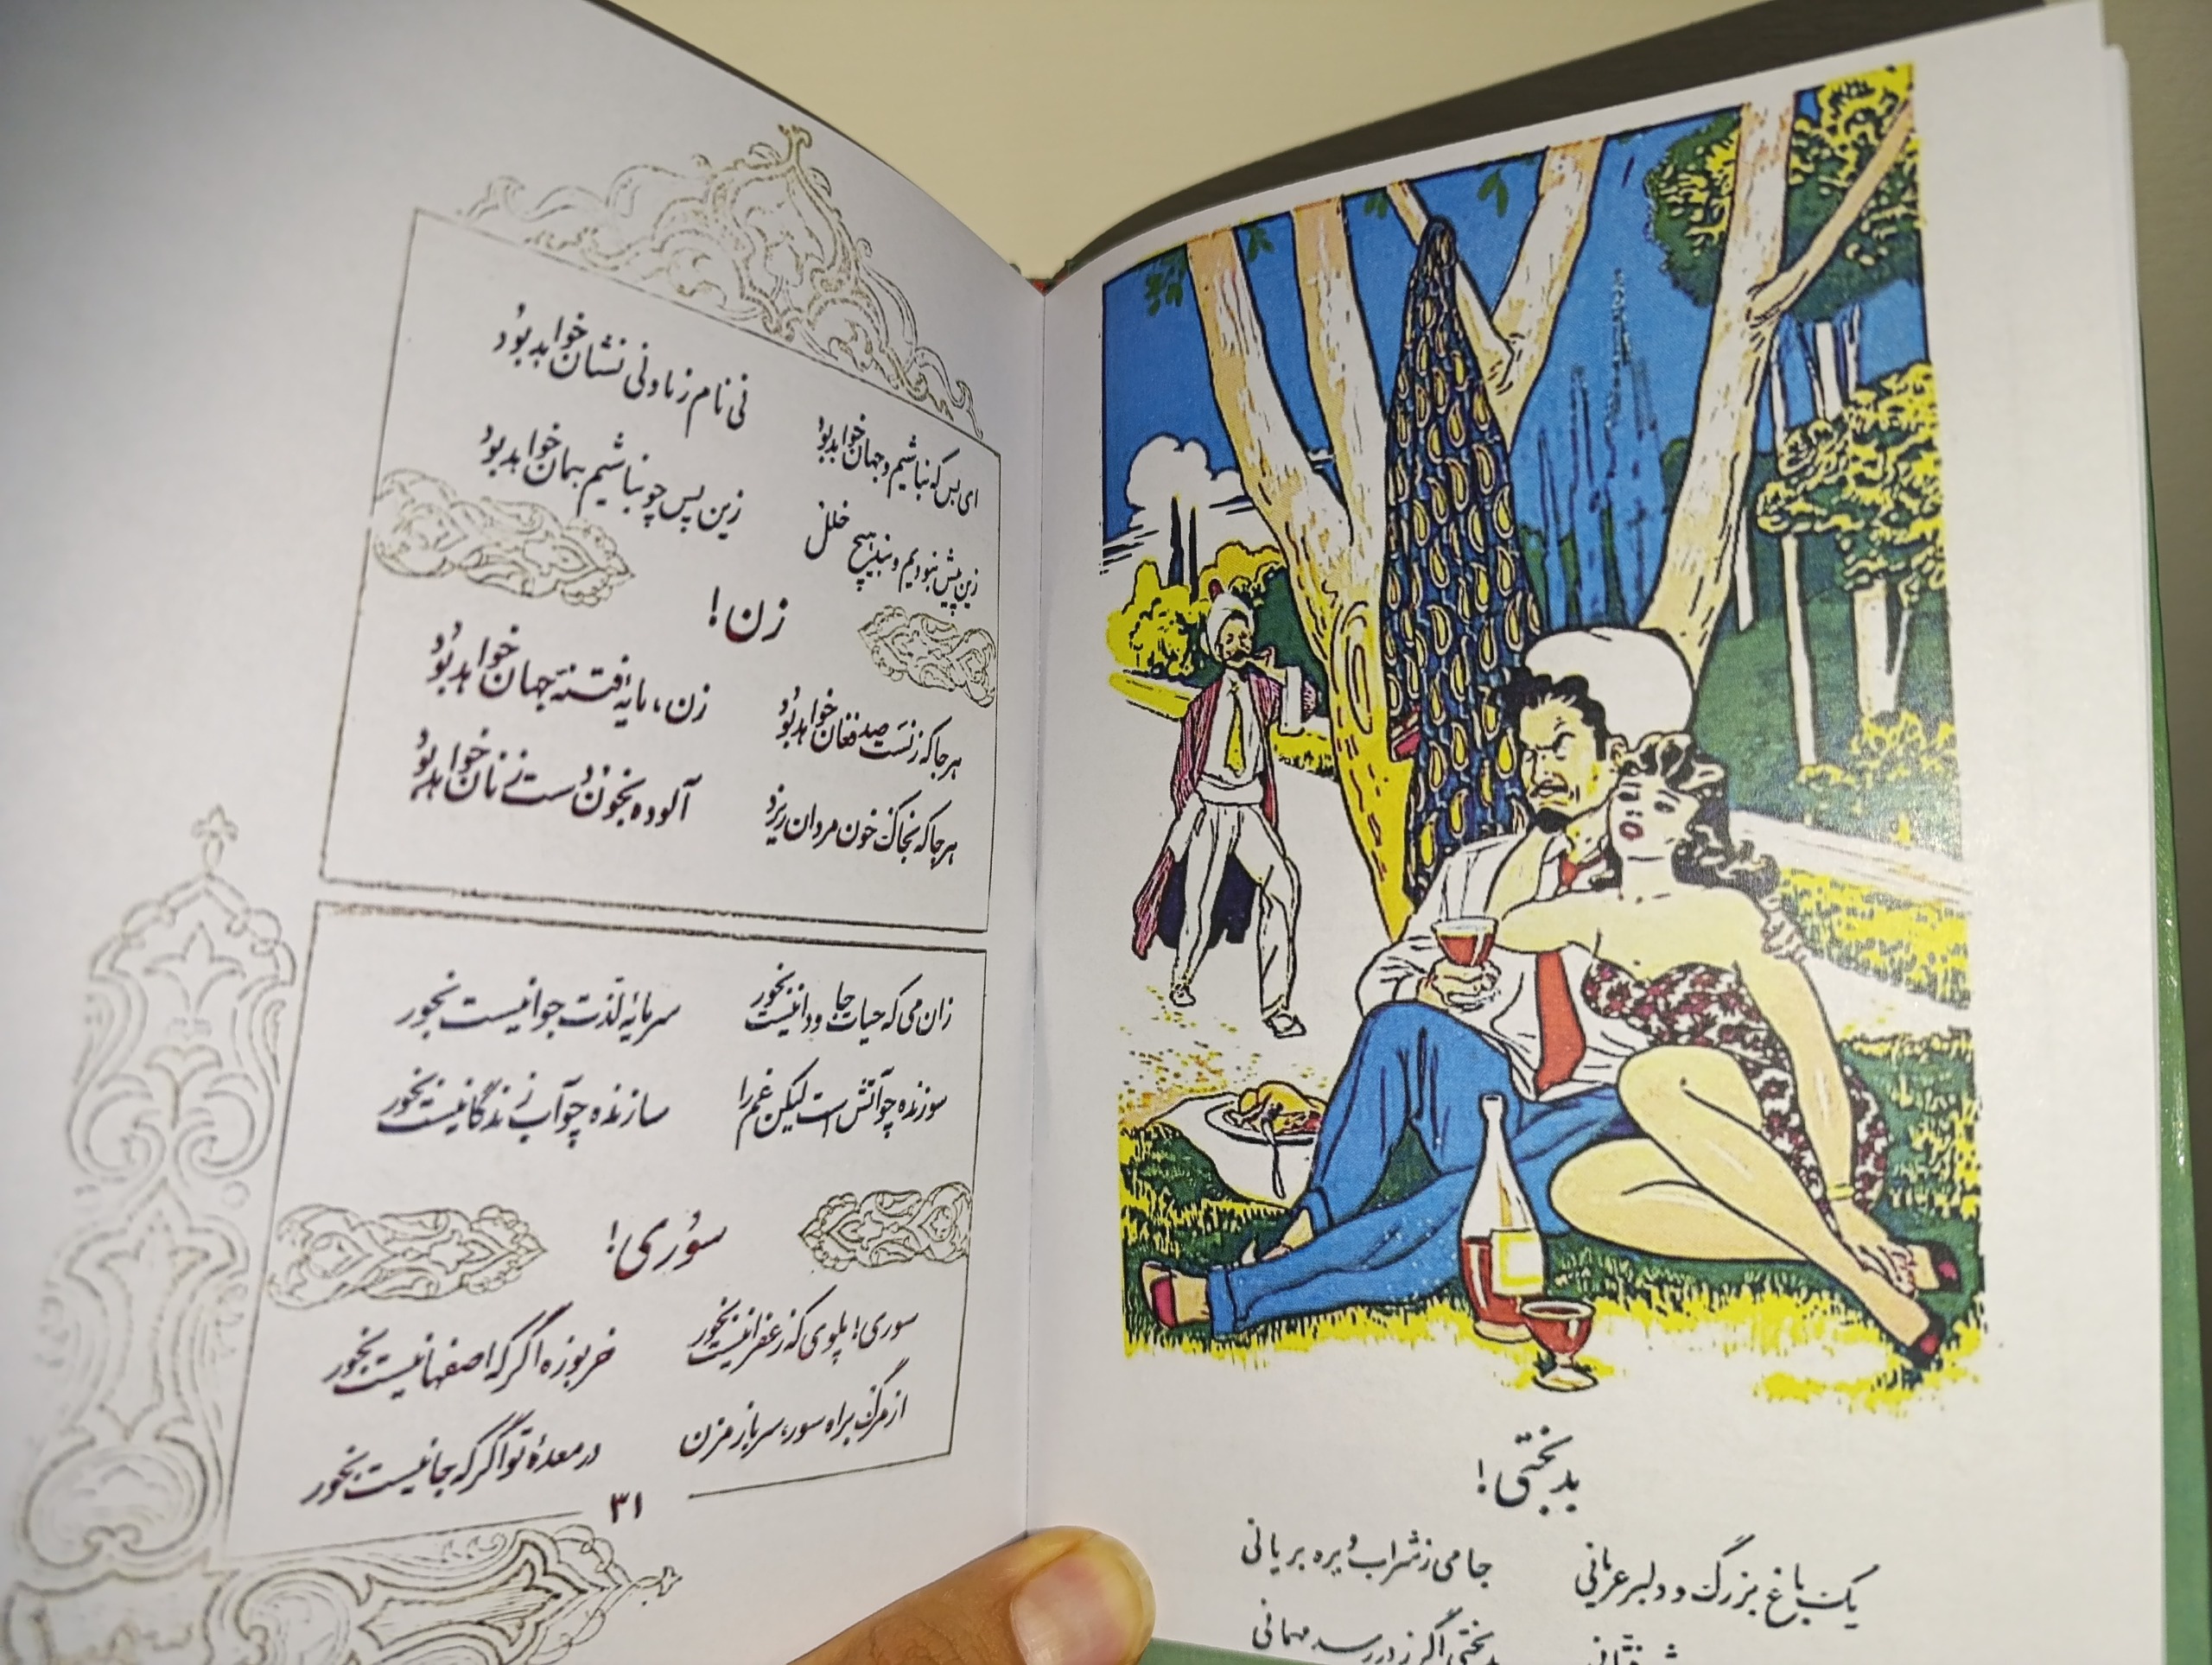 ای بس که نباشیم و جهان خواهد بود نی نام ز ما و نی نشان خواهد بود
زین پیش نبودیم و نبد هیچ خلل زین پس چو نباشیم همان خواهد بود
زن!
هر جا که زنست صد فغان خواهد بود زن، مایهٔ فتنهٔ جهان خواهد بود
هر جا که بخاک خون مردان ریزد آلوده بخون دست زنان خواهد بود
زان می که حیات جاودانیست بخور سرمایهٔ لذت جوانیست بخور
سوزنده چو آتش است لیکن غم را سازنده چو آب زندگانیست بخور
سوری!
سوری! پلوی که زعفرانیست بخور خربوزه اگر که اصفهانیست بخور
از مرگ براه سور، سر باز مزن در معدهٔ تو اگر که جا نیست بخور
۳۱
بدبختی!
یک باغ بزرگ و دلبر عریانی جامی ز شراب و بره بریانی
بدبختی اگر ز در رسد مهمانی